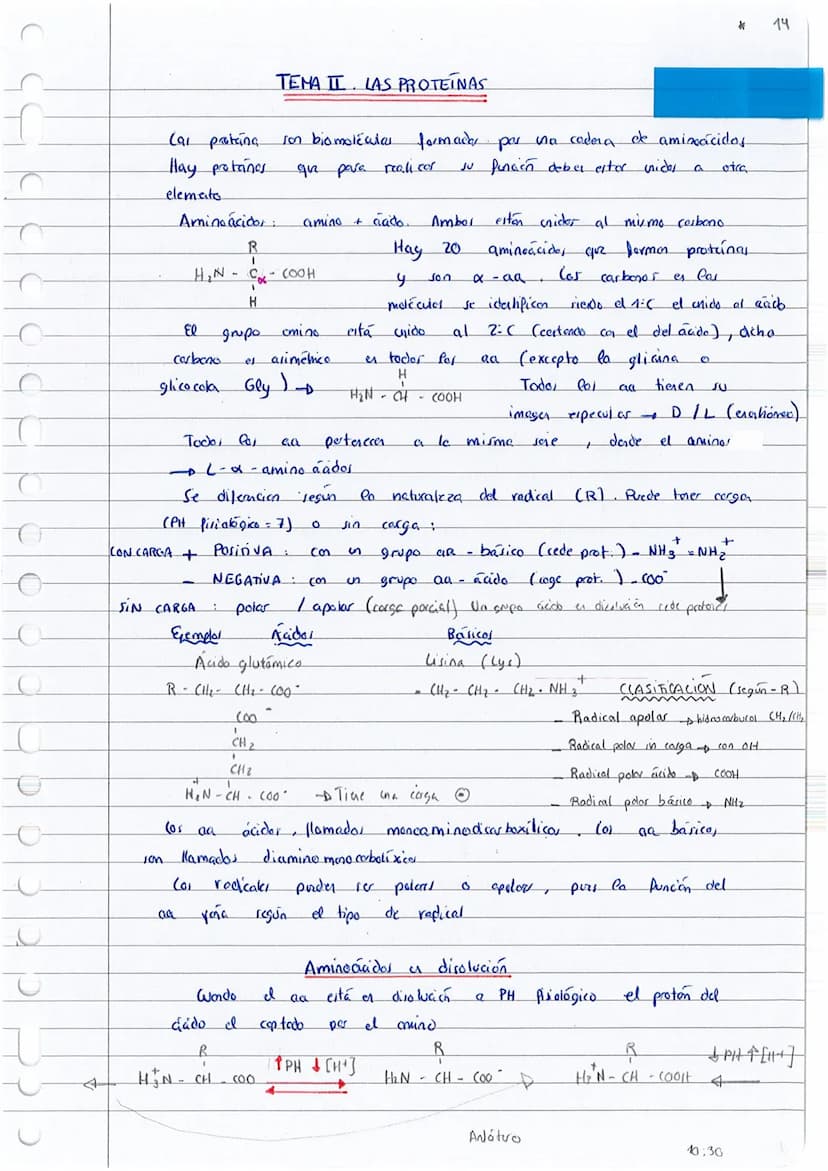 * 14
TEMA II. LAS PROTEÍNAS
Las proteína son biomoléculas formadas por una cadena de aminoácidos
Hay proteínas que para realizar su función deben estar unidos a otro
elemento
Aminoácidos: amino + ácido. Ambos están unidos al mismo carbono
R
H₂N - Cα - COOH
H
Hay 20 aminoácidos que forman proteínas
y son α-aa. Los carbonos en las
moléculas se identifican siendo el 1:C el unido al ácido
El grupo amino está unido al 2:C (contando con el del ácido), dicho
carbono es asimétrico en todos los aa (excepto la glicina o
glicocola Gly) →
H
H₂N - CH - COOH
Todos los aa tienen su
imagen especular → D/L (enantiómeros)
Todos los aa pertenecen a la misma serie, donde el amino
→ L-α-aminoácidos
Se diferencian según la naturaleza del radical (R). Puede tener carga
(PH fisiológico = 7) o sin carga:
CON CARGA + POSITIVA: con un grupo aa - básico (cede prot.) - NH₃⁺ = NH₂⁺
- NEGATIVA: con un grupo aa - ácido (coge prot.) - COO⁻
SIN CARGA: polar / apolar (carga parcial) Un grupo ácido en disolución cede protones
Ejemplos Ácidos Básicos
Ácido glutámico Lisina (Lys)
R - CH₂ - CH₂ - COO⁻ - CH₂ - CH₂ - CH₂ - NH₃⁺
CLASIFICACIÓN (según -R)
- Radical apolar → hidrocarburos CH₂/CH₃
- Radical polar sin carga → con OH
- Radical polar ácido → COOH
- Radical polar básico → NH₂
COO⁻
CH₂
CH₂
H₂N⁺ - CH - COO⁻ → Tiene una carga ⊖
Los aa ácidos, llamados monoaminodicarboxílicos. Los aa básicos,
son llamados diamino monocarbolíxicos
Los radicales pueden ser polares o apolares, pues la función del
aa varía según el tipo de radical
Aminoácidos en disolución
Cuando el aa está en disolución a PH fisiológico el protón del
ácido el captado por el amino
R
H₃⁺N - CH - COO
↑PH ↓[H⁺]
R
H₂N - CH - COO⁻
R
H₃⁺N - CH - COOH
↓PH ↑[H⁺]
10:30